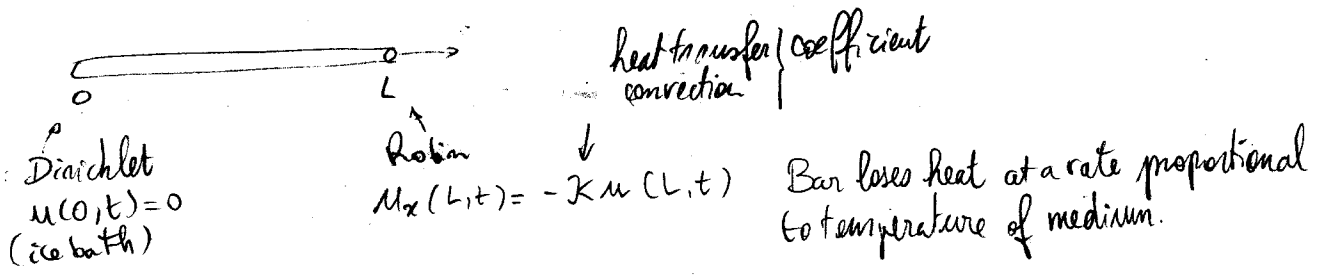 heat transfer } coefficient
convection
0
L
Dirichlet
u(0,t)=0
(ice bath)
Robin
↓
u_x(L,t) = -K u(L,t)
Bar loses heat at a rate proportional
to temperature of medium.